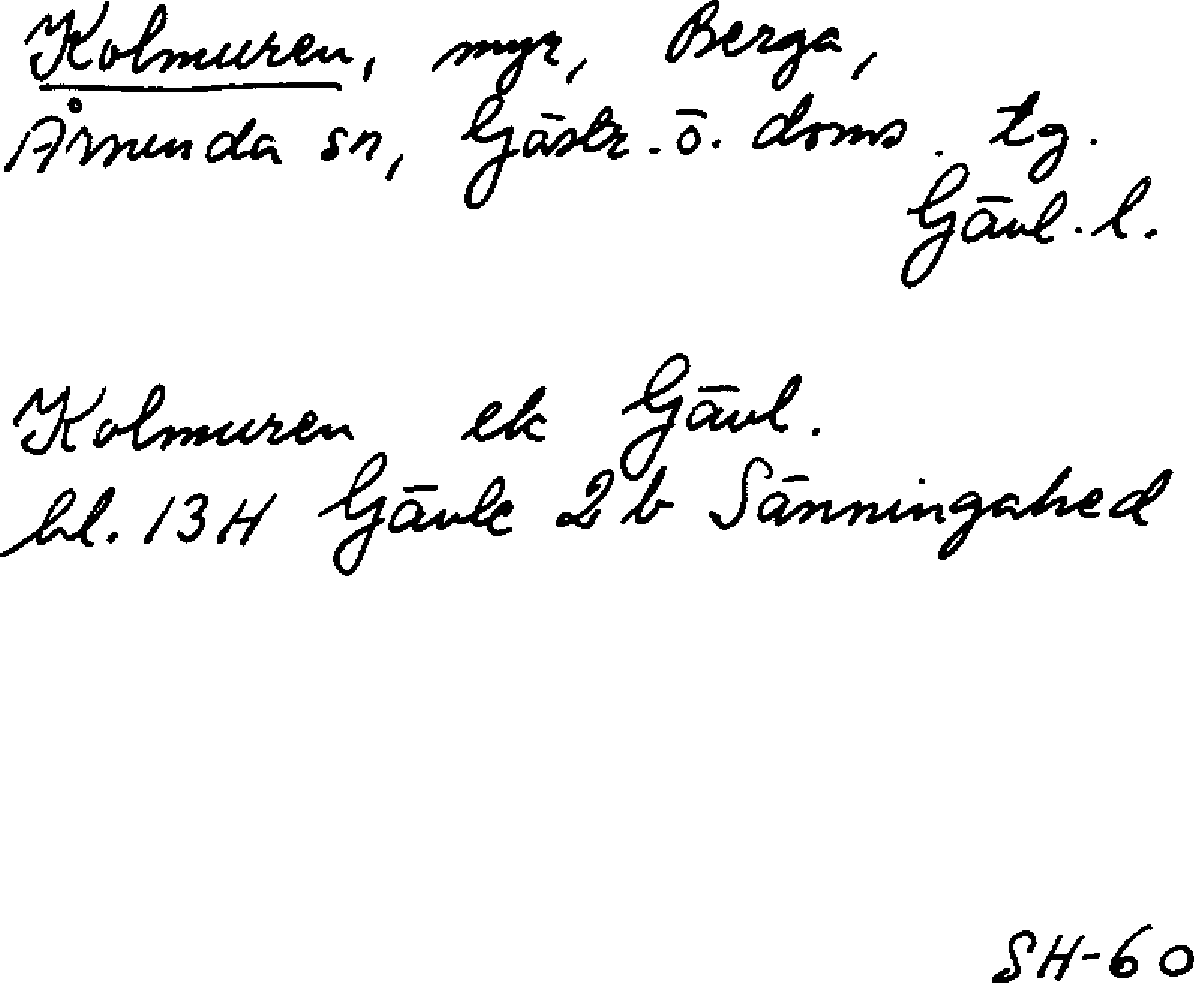 Kolmuren, myr, Berga,
Årsunda sn, Gästr. ö. doms. tg.
Gävl. l.
Kolmuren ek Gävl.
bl. 13H Gävle 2 b Sänningahed
SH-60